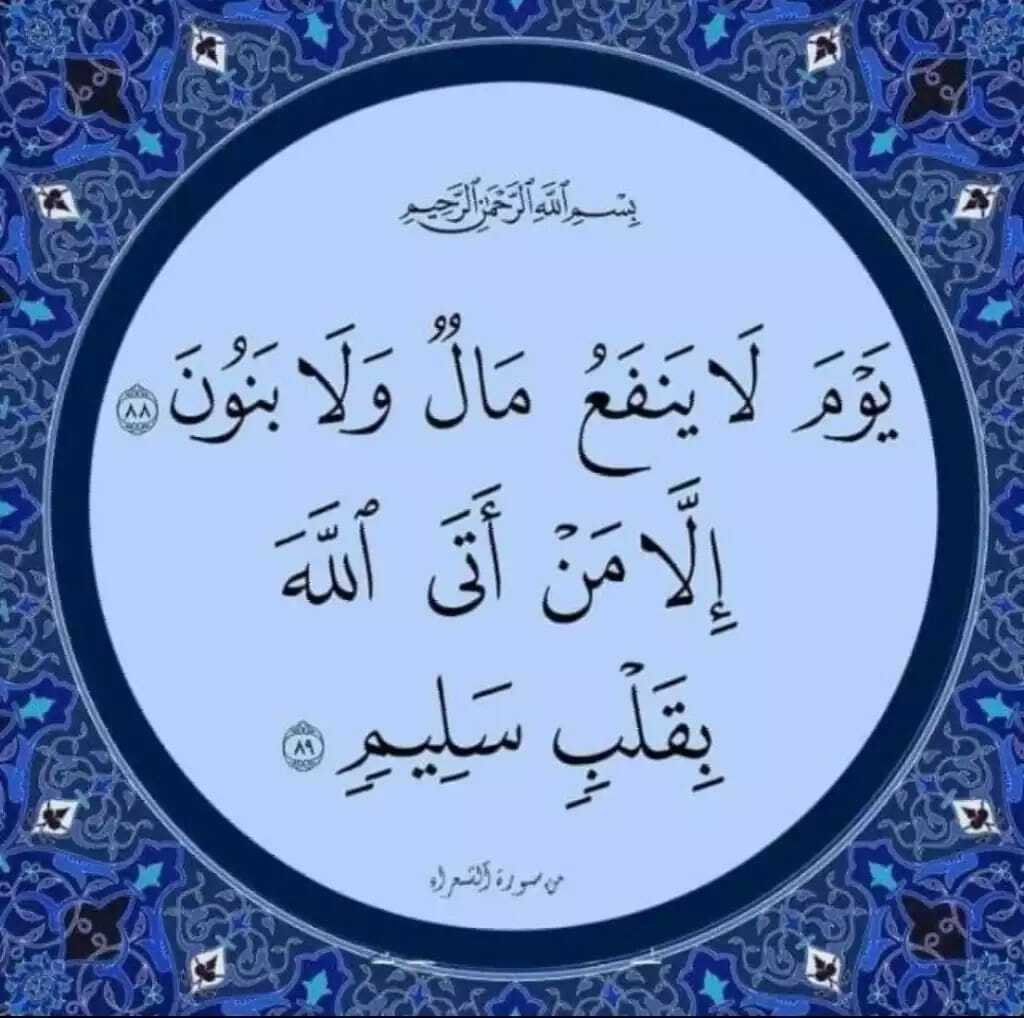 بِسْمِ ٱللَّهِ ٱلرَّحْمَٰنِ ٱلرَّحِيمِ
يَوْمَ لَا يَنفَعُ مَالٌ وَلَا بَنُونَ ٨٨
إِلَّا مَنْ أَتَى ٱللَّهَ
بِقَلْبٍ سَلِيمٍ ٨٩
من سورة الشعراء